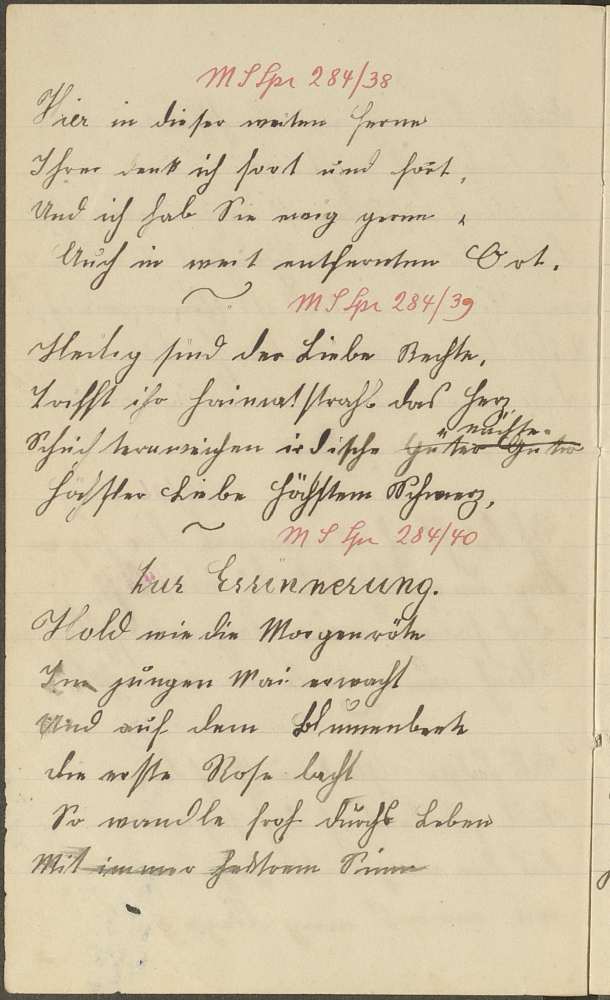 MS Spr 284/38
Hier in dieser weiten Ferne
Ihrer denk ich fort und fort,
Und ich hab Sie ewig gerne,
Auch in weit entfernten Ort.
MS Spr 284/39
Heilig sind der Liebe Rechte,
Trifft ihr das Herz
nächte.
irdische Güter Güter
Höchster Liebe höchstem Schmerz,
MS Spr 284/40
Zur Errinnerung.
Hold wie die Morgenröte
Im jungen Mai erwacht
Und auf dem Blumenbeete
die erste Rose lacht
So wandle froh durchs Leben
Mit immer Sinn